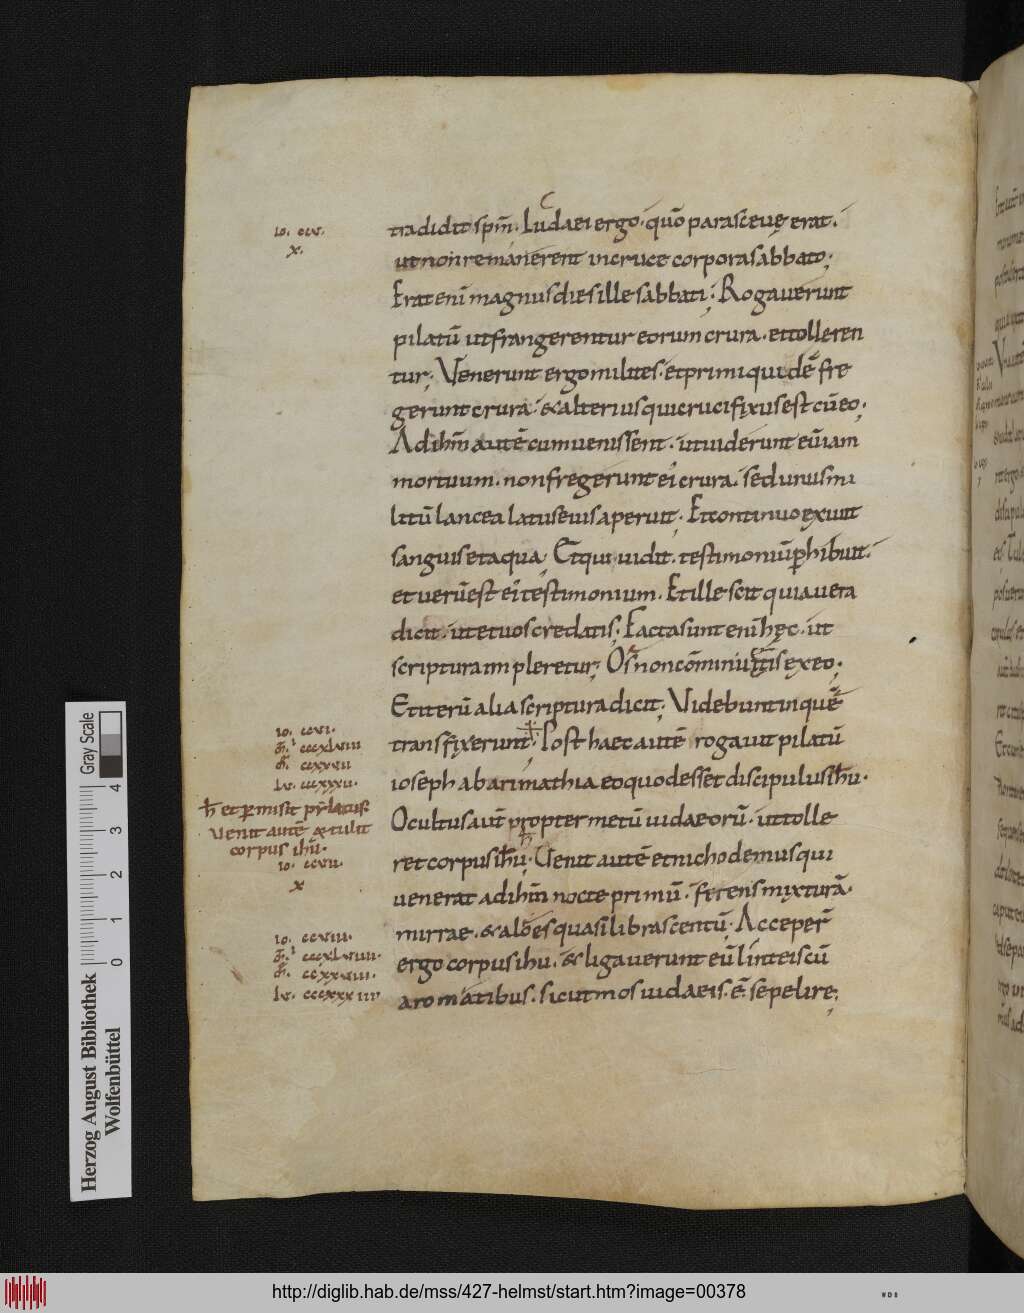 tradidit sp̄m. Iudaei ergo. quō parasceue erat.
ut non remanerent in cruce corpora sabbato;
Erat enī magnus dies ille sabbati; Rogauerunt
pilatū ut frangerentur eorum crura. et tolleren
tur; Venerunt ergo milites. et primi quidē fre
gerunt crura. & alterius qui crucifixus est cū eo;
Ad ihm̄ autē cum uenissent. ut uiderunt eū iam
mortuum. non fregerunt ei crura. sed unus mi
litū lancea latus eius aperuit. Et continuo exiuit
sanguis et aqua; Et qui uidit. testimoniū ꝑhibuit.
et uerū est ei testimonium. Et ille scit quia uera
dicit. ut et uos credatis; Facta sunt enī hęc. ut
scriptura impleretur; Os non cōminuetis ex eo;
Et iterū alia scriptura dicit; Videbunt in quē
transfixerunt; Post haec autē rogauit pilatū
ioseph ab arimathia eo quod esset discipulus ihu.
Ocultus aut̄ propter metū iudaeorū. ut tolle
ret corpus ihu; Uenit autē et nichodemus qui
uenerat ad ihm̄ nocte primū. ferens mixturā
mirrae. & aloes quasi libras centū; Acceper̄
ergo corpus ihu. & ligauerunt eū linteis cū
aromatibus. sicut mos iudaeis. ē sepelire;
io.
x.
io. ccvi.
io. ccvii.
x
io. ccviii.
ħ et ꝑmisit pylatus
Venit autē & tulit
corpus ihu.
Gray Scale
0 1 2 3 4
Herzog August Bibliothek
Wolfenbüttel
http://diglib.hab.de/mss/427-helmst/start.htm?image=00378